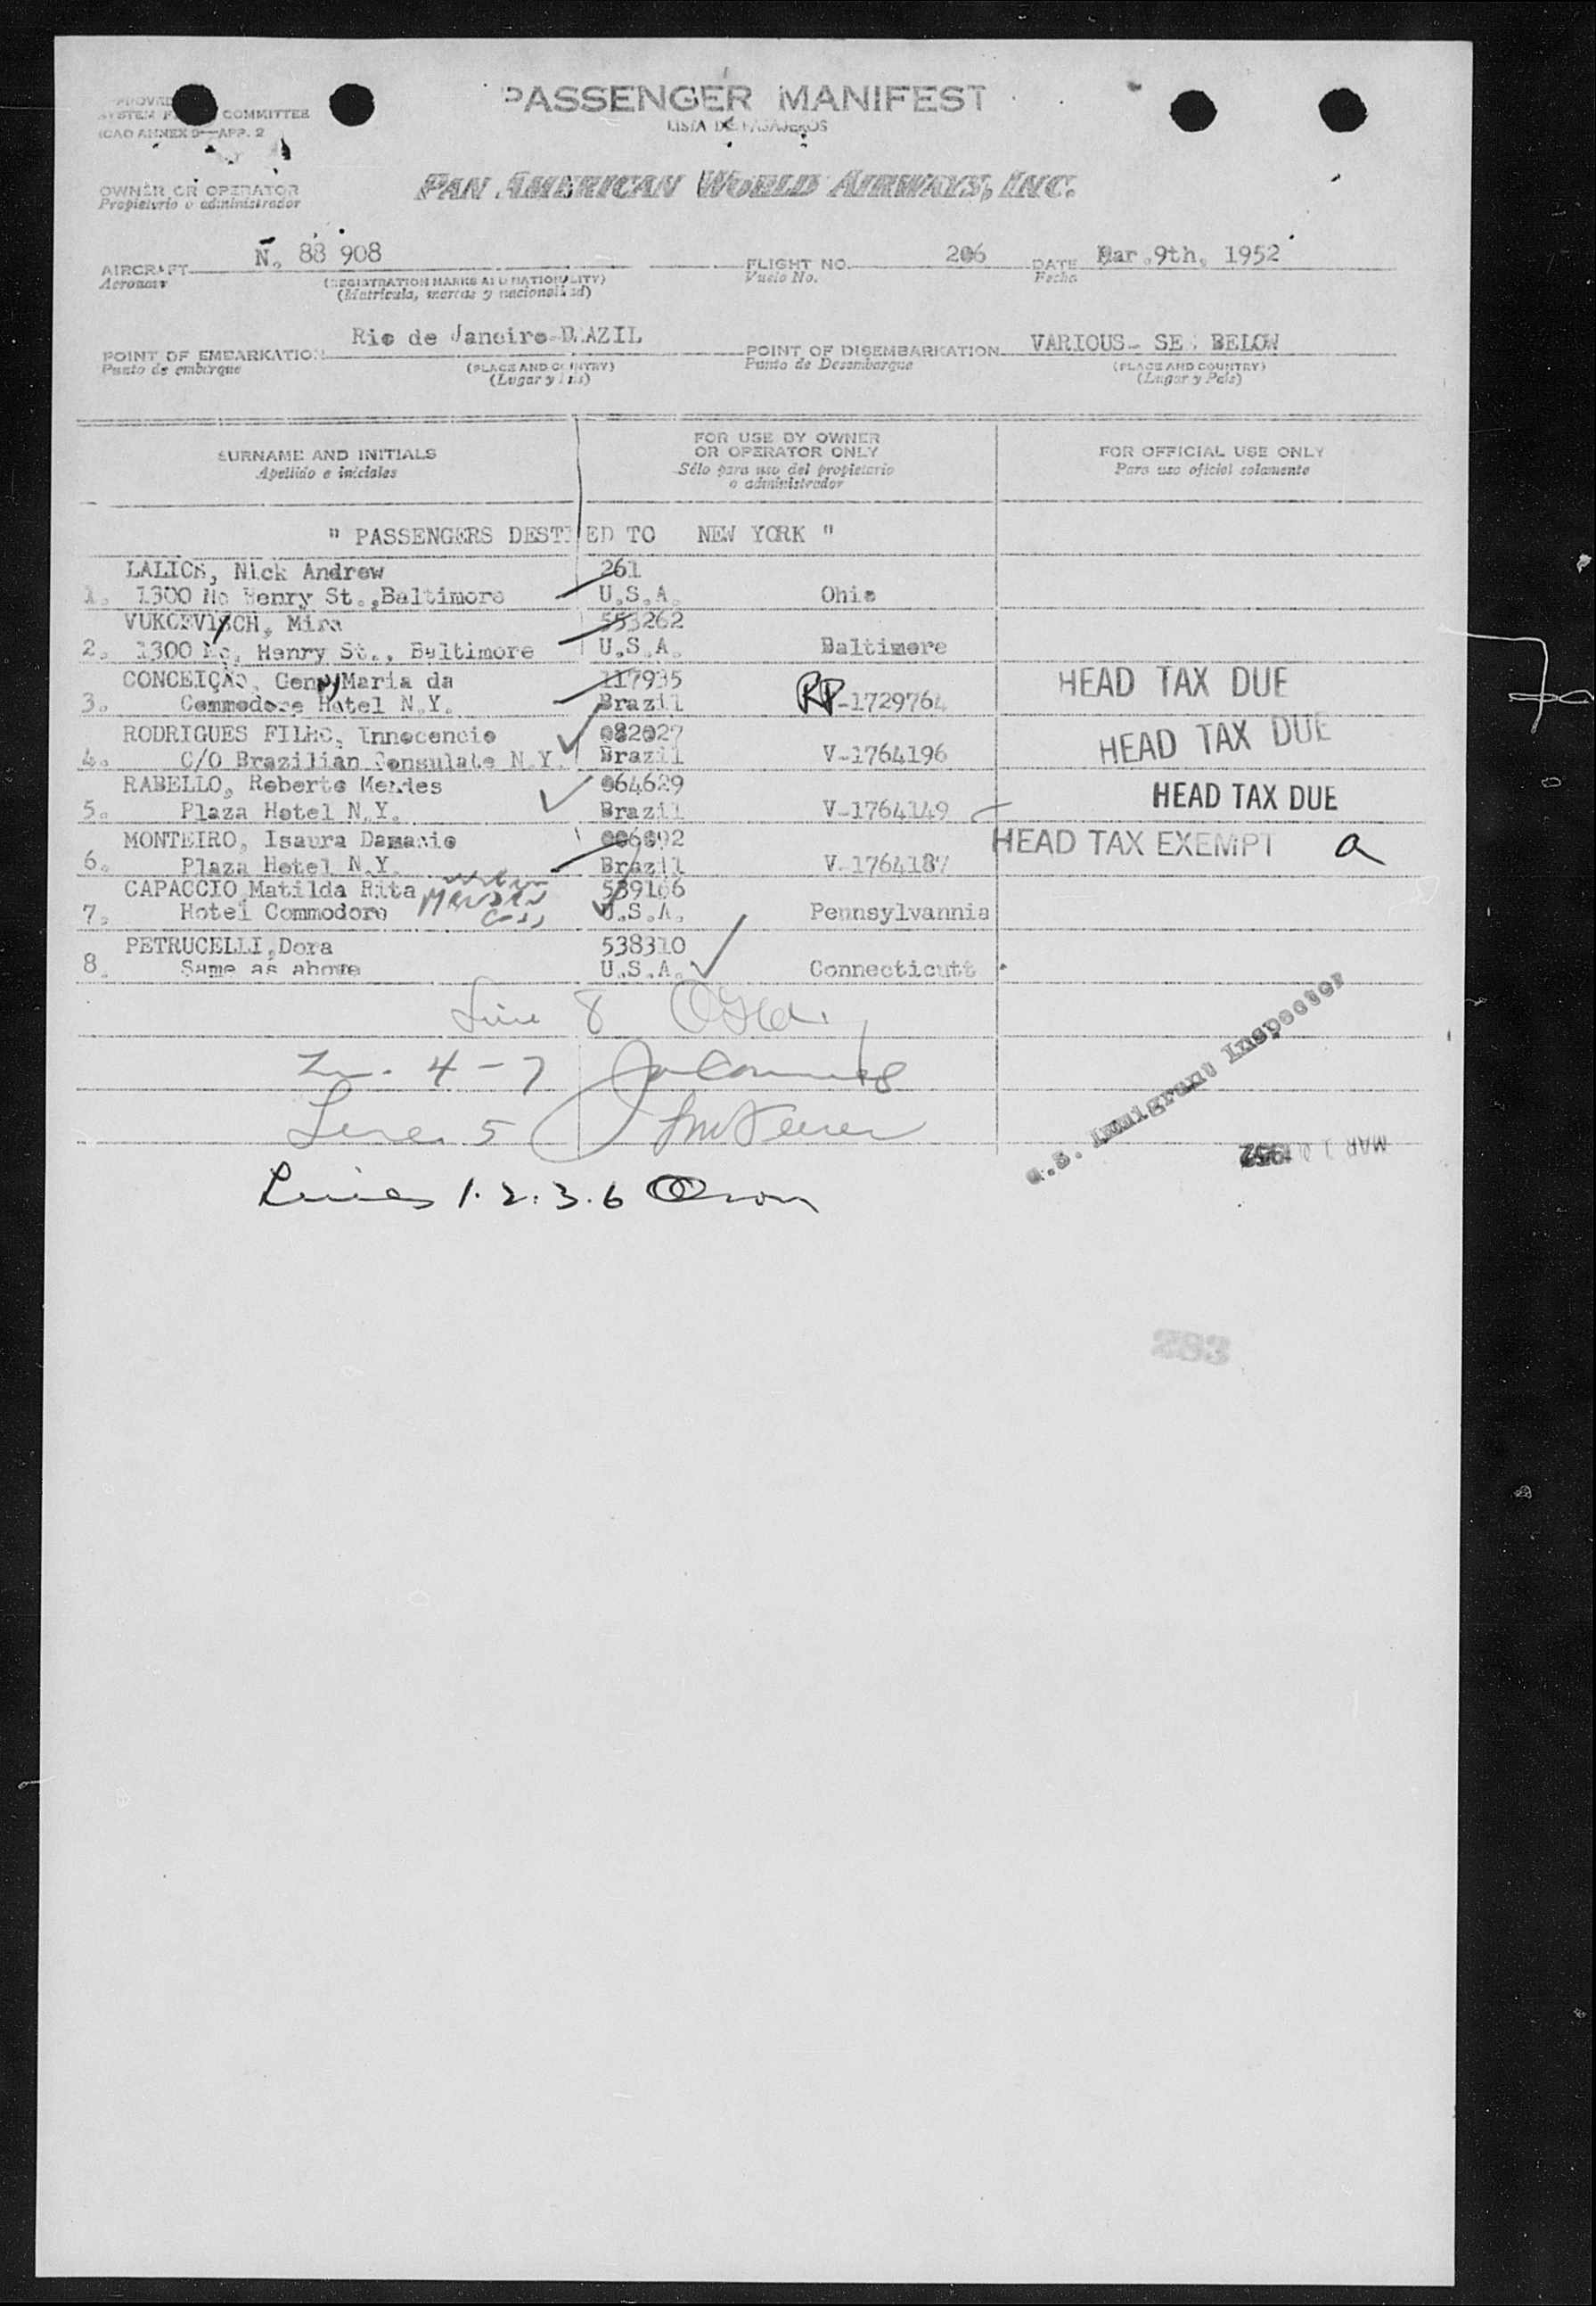 PASSENGER MANIFEST
LISTA DE PASAJEROS
COMMITTEE
ICAO ANNEX 9—APP. 2
OWNER OR OPERATOR
Propietario o administrador
PAN AMERICAN WORLD AIRWAYS, INC.
AIRCRAFT N. 88 908 FLIGHT NO. 206 DATE Mar.9th, 1952
Aeronave (REGISTRATION MARKS AND NATIONALITY) Vuelo No. Fecha
(Matrícula, marcas y nacionalidad)
POINT OF EMBARKATION Rio de Janeiro-BRAZIL POINT OF DISEMBARKATION VARIOUS- SEE BELOW
Punto de embarque (PLACE AND COUNTRY) Punto de Desembarque (PLACE AND COUNTRY)
(Lugar y País) (Lugar y País)
SURNAME AND INITIALS
Apellido e iniciales
FOR USE BY OWNER
OR OPERATOR ONLY
Sólo para uso del propietario
o administrador
FOR OFFICIAL USE ONLY
Para uso oficial solamente
" PASSENGERS DESTINED TO NEW YORK "
LALICH, Nick Andrew 261
1. 1300 Mc Henry St.,Baltimore U.S.A. Ohio
VUKCEVISCH, Mira 553262
2. 1300 Mc, Henry St., Baltimore U.S.A. Baltimore
CONCEIÇÃO, Geny Maria da 117935
3. Commodore Hotel N.Y. Brazil RP-1729764 HEAD TAX DUE
RODRIGUES FILHO, Innocencio 082027
4. C/O Brazilian Consulate N.Y. Brazil V-1764196 HEAD TAX DUE
RABELLO, Roberto Mendes 064629
5. Plaza Hotel N.Y. Brazil V-1764149 HEAD TAX DUE
MONTEIRO, Isaura Damasio 006092
6. Plaza Hotel N.Y. Brazil V-1764187 HEAD TAX EXEMPT a
CAPACCIO, Matilda Rita 539166
7. Hotel Commodore U.S.A. Pennsylvannia
PETRUCELLI, Dora 538310
8. Same as above U.S.A. Connecticutt
Line 8
4-7
Line 5
Lines 1.2.3.6 Olson
U.S. Immigrant Inspector
MAR 1952
283